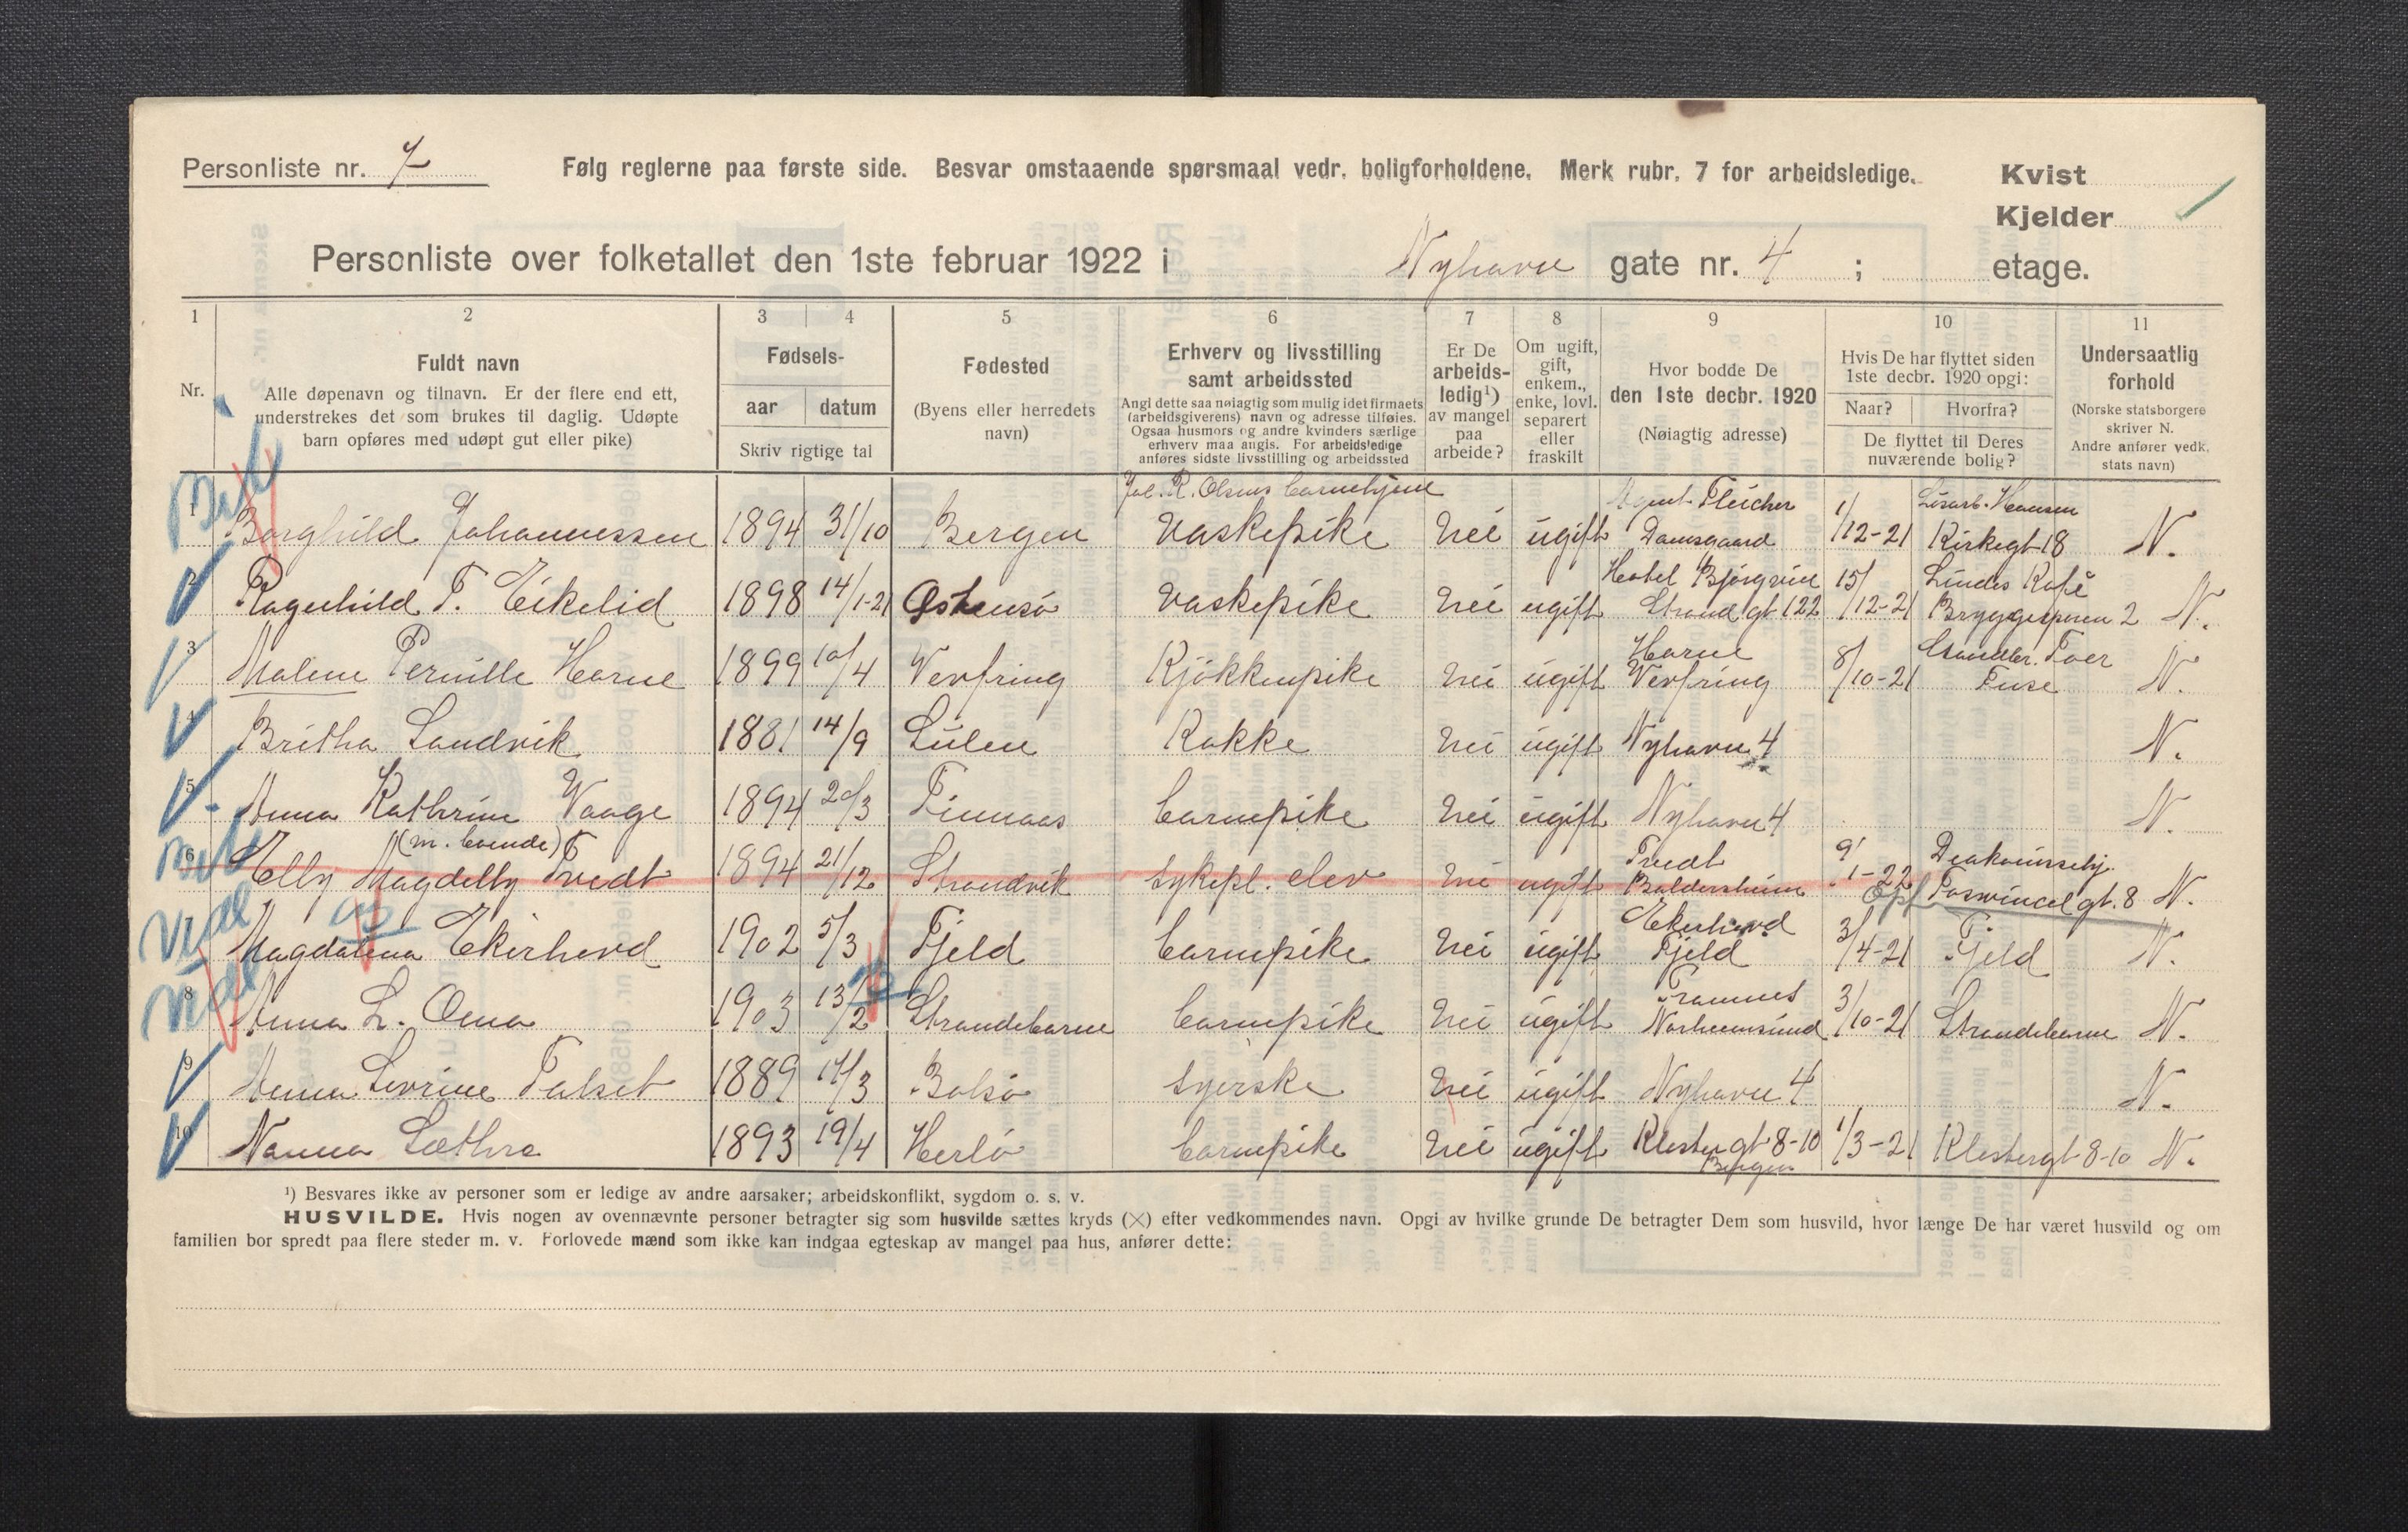 Personliste nr. 7
Følg reglerne paa første side. Besvar omstaaende spørsmaal vedr. boligforholdene. Merk rubr. 7 for arbeidsledige.
Kvist
Kjelder
Personliste over folketallet den 1ste februar 1922 i Nyhavn gate nr. 4 ; etage.
1 2 3 4 5 6 7 8 9 10 11
Nr.
Fuldt navn
Alle døpenavn og tilnavn. Er der flere end ett,
understrekes det som brukes til daglig. Udøpte
barn opføres med udøpt gut eller pike)
Fødsels-
aar datum
Skriv rigtige tal
Fødested
(Byens eller herredets
navn)
Erhverv og livsstilling
samt arbeidssted
Angi dette saa nøiagtig som mulig idet firmaets
(arbeidsgiverens) navn og adresse tilføies.
Ogsaa husmors og andre kvinders særlige
erhverv maa angis. For arbeidsledige
anføres sidste livsstilling og arbeidssted
Er De
arbeids-
ledig¹)
av mangel
paa
arbeide?
Om ugift,
gift,
enkem.,
enke, lovl.
separert
eller
fraskilt
Hvor bodde De
den 1ste decbr. 1920
(Nøiagtig adresse)
Hvis De har flyttet siden
1ste decbr. 1920 opgi:
Naar? Hvorfra?
De flyttet til Deres
nuværende bolig?
Undersaatlig
forhold
(Norske statsborgere
skriver N.
Andre anfører vedk.
stats navn)
Joh. R. Olsens barnehjem
1 Borghild Johannessen 1894 31/10 Bergen Vaskepike Nei ugift Agent Fleicher Damsgaard 1/12-21 Løsarb. Hansen Kirkegt 18 N.
2 Ragnhild T. Eikelid 1898 14/1-21 Østensø Vaskepike Nei ugift Hotel Bjørgvin Strandgt 122 15/12-21 Lindes Kafé Bryggesporen 2 N.
3 Malene Pernille Horne 1899 10/4 Vevring Kjøkkenpike Nei ugift Horne Vevring 8/10-21 Fuse N.
4 Britha Sandvik 1881 14/9 Kokke Nei ugift Nyhavn 4 N.
5 Anna Kathrine Vaage 1894 20/3 Finnaas barnepike Nei ugift Nyhavn 4 N.
(m. boende)
6 Elly Magdelly Tvedt 1894 21/12 Strandvik Sykepl. elev Nei ugift Tvedt Baldersheim 9/1-22 Diakonissehj. Foswinckelgt. 8 N.
Opf
7 Magdalena Ekerhovd 1902 5/3 Fjeld barnepike Nei ugift Ekerhovd Fjeld 3/4-21 Fjeld N.
8 Anna L. Oma 1903 13/2 Strandebarm barnepike Nei ugift Framnes Norheimsund 3/10-21 Strandebarm N.
9 Anna Severine Talset 1889 17/3 Bolsø Syerske Nei ugift Nyhavn 4 N.
10 Nanna Sæthre 1893 19/4 Herlø barnepike Nei ugift Klostergt 8-10 Bergen 1/3-21 Klostergt 8-10 N.
¹) Besvares ikke av personer som er ledige av andre aarsaker; arbeidskonflikt, sygdom o. s. v.
HUSVILDE. Hvis nogen av ovennævnte personer betragter sig som husvilde sættes kryds (×) efter vedkommendes navn. Opgi av hvilke grunde De betragter Dem som husvild, hvor længe De har været husvild og om
familien bor spredt paa flere steder m. v. Forlovede mænd som ikke kan indgaa egteskap av mangel paa hus, anfører dette: